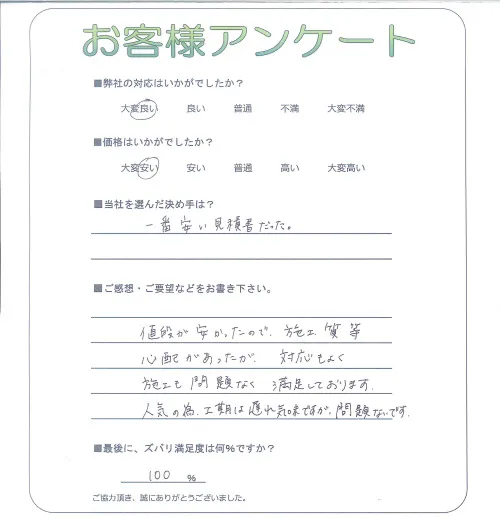 お客様アンケート
■弊社の対応はいかがでしたか?
大変良い 良い 普通 不満 大変不満
■価格はいかがでしたか?
大変安い 安い 普通 高い 大変高い
■当社を選んだ決め手は?
一番安い見積書だった。
■ご感想・ご要望などをお書き下さい。
値段が安かったので、施工、質等
心配があったが、対応もよく
施工も問題なく満足しております。
人気の為、工期は遅れ気味ですが、問題ないです。
■最後に、ズバリ満足度は何%ですか?
100 %
ご協力頂き、誠にありがとうございました。